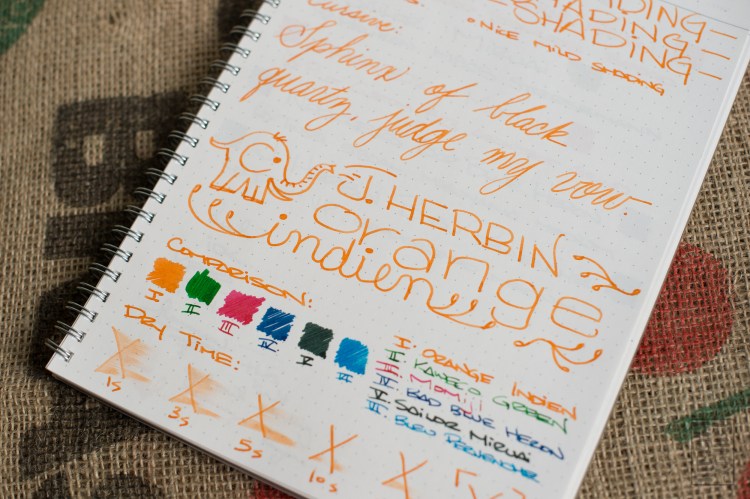 SHADING-
-SHADING-
-SHADING-
NICE MILD SHADING
Cursive:
Sphinx of black
quartz, judge my vow.
J. HERBIN
orange
indien
COMPARISON:
I II III IV V VI
I. ORANGE INDIEN
II. KAWECO GREEN
III. MOMIJI
IV. BAD BLUE HERON
V. SAILOR MIRUAI
VI. BLEU PERVENCHE
DRY TIME:
X X X X X
1s 3s 5s 10s